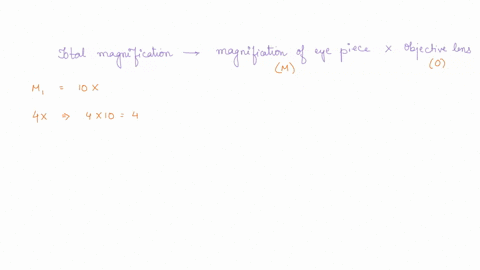 Total magnification → magnification of eye piece × Objective lens
(M) (O)
M₁ = 10 X
4X ⇒ 4 X 10 = 4